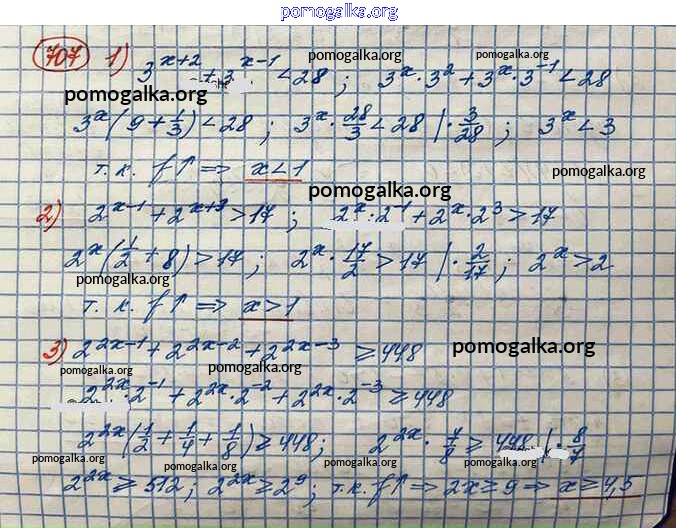 pomogalka.org
707 1) 3^(x+2) + 3^(x-1) < 28 ; 3^x · 3^2 + 3^x · 3^(-1) < 28
pomogalka.org pomogalka.org
pomogalka.org
3^x (9 + 1/3) < 28 ; 3^x · 28/3 < 28 | · 3/28 ; 3^x < 3
т. к. f↑ ⇒ x < 1
pomogalka.org
pomogalka.org
2) 2^(x-1) + 2^(x+3) > 17 ; 2^x · 2^(-1) + 2^x · 2^3 > 17
2^x (1/2 + 8) > 17 ; 2^x · 17/2 > 17 | · 2/17 ; 2^x > 2
pomogalka.org
т. к. f↑ ⇒ x > 1
3) 2^(2x-1) + 2^(2x-2) + 2^(2x-3) ⩾ 448
pomogalka.org
pomogalka.org pomogalka.org
2^(2x) · 2^(-1) + 2^(2x) · 2^(-2) + 2^(2x) · 2^(-3) ⩾ 448
2^(2x) (1/2 + 1/4 + 1/8) ⩾ 448 ; 2^(2x) · 7/8 ⩾ 448 | · 8/7
pomogalka.org pomogalka.org pomogalka.org pomogalka.org
2^(2x) ⩾ 512 ; 2^(2x) ⩾ 2^9 ; т. к. f↑ ⇒ 2x ⩾ 9 ⇒ x ⩾ 4,5
pomogalka.org